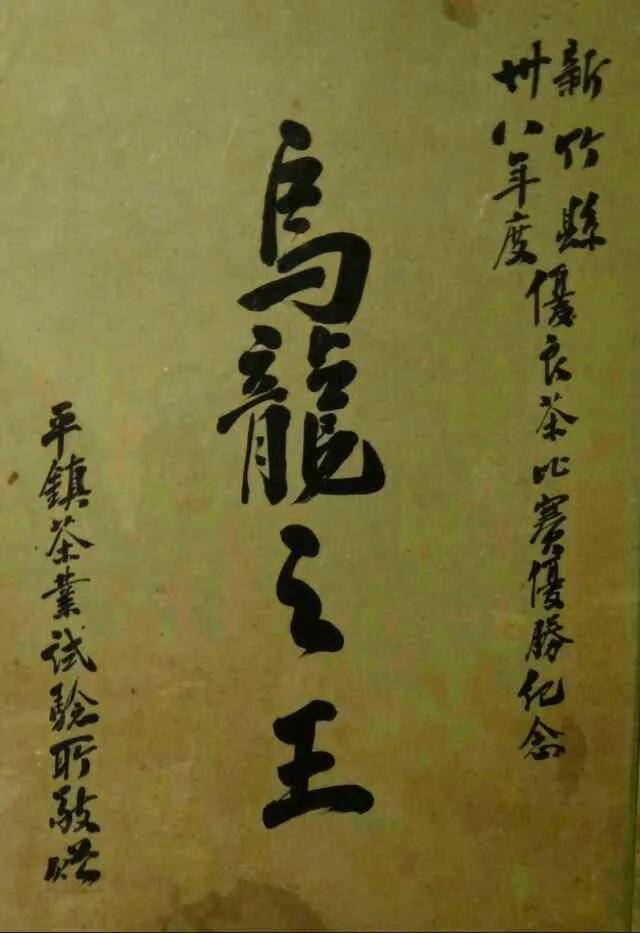 新竹縣
卅八年度
優良茶比賽優勝紀念
烏龍之王
平鎮茶業試驗所敬贈